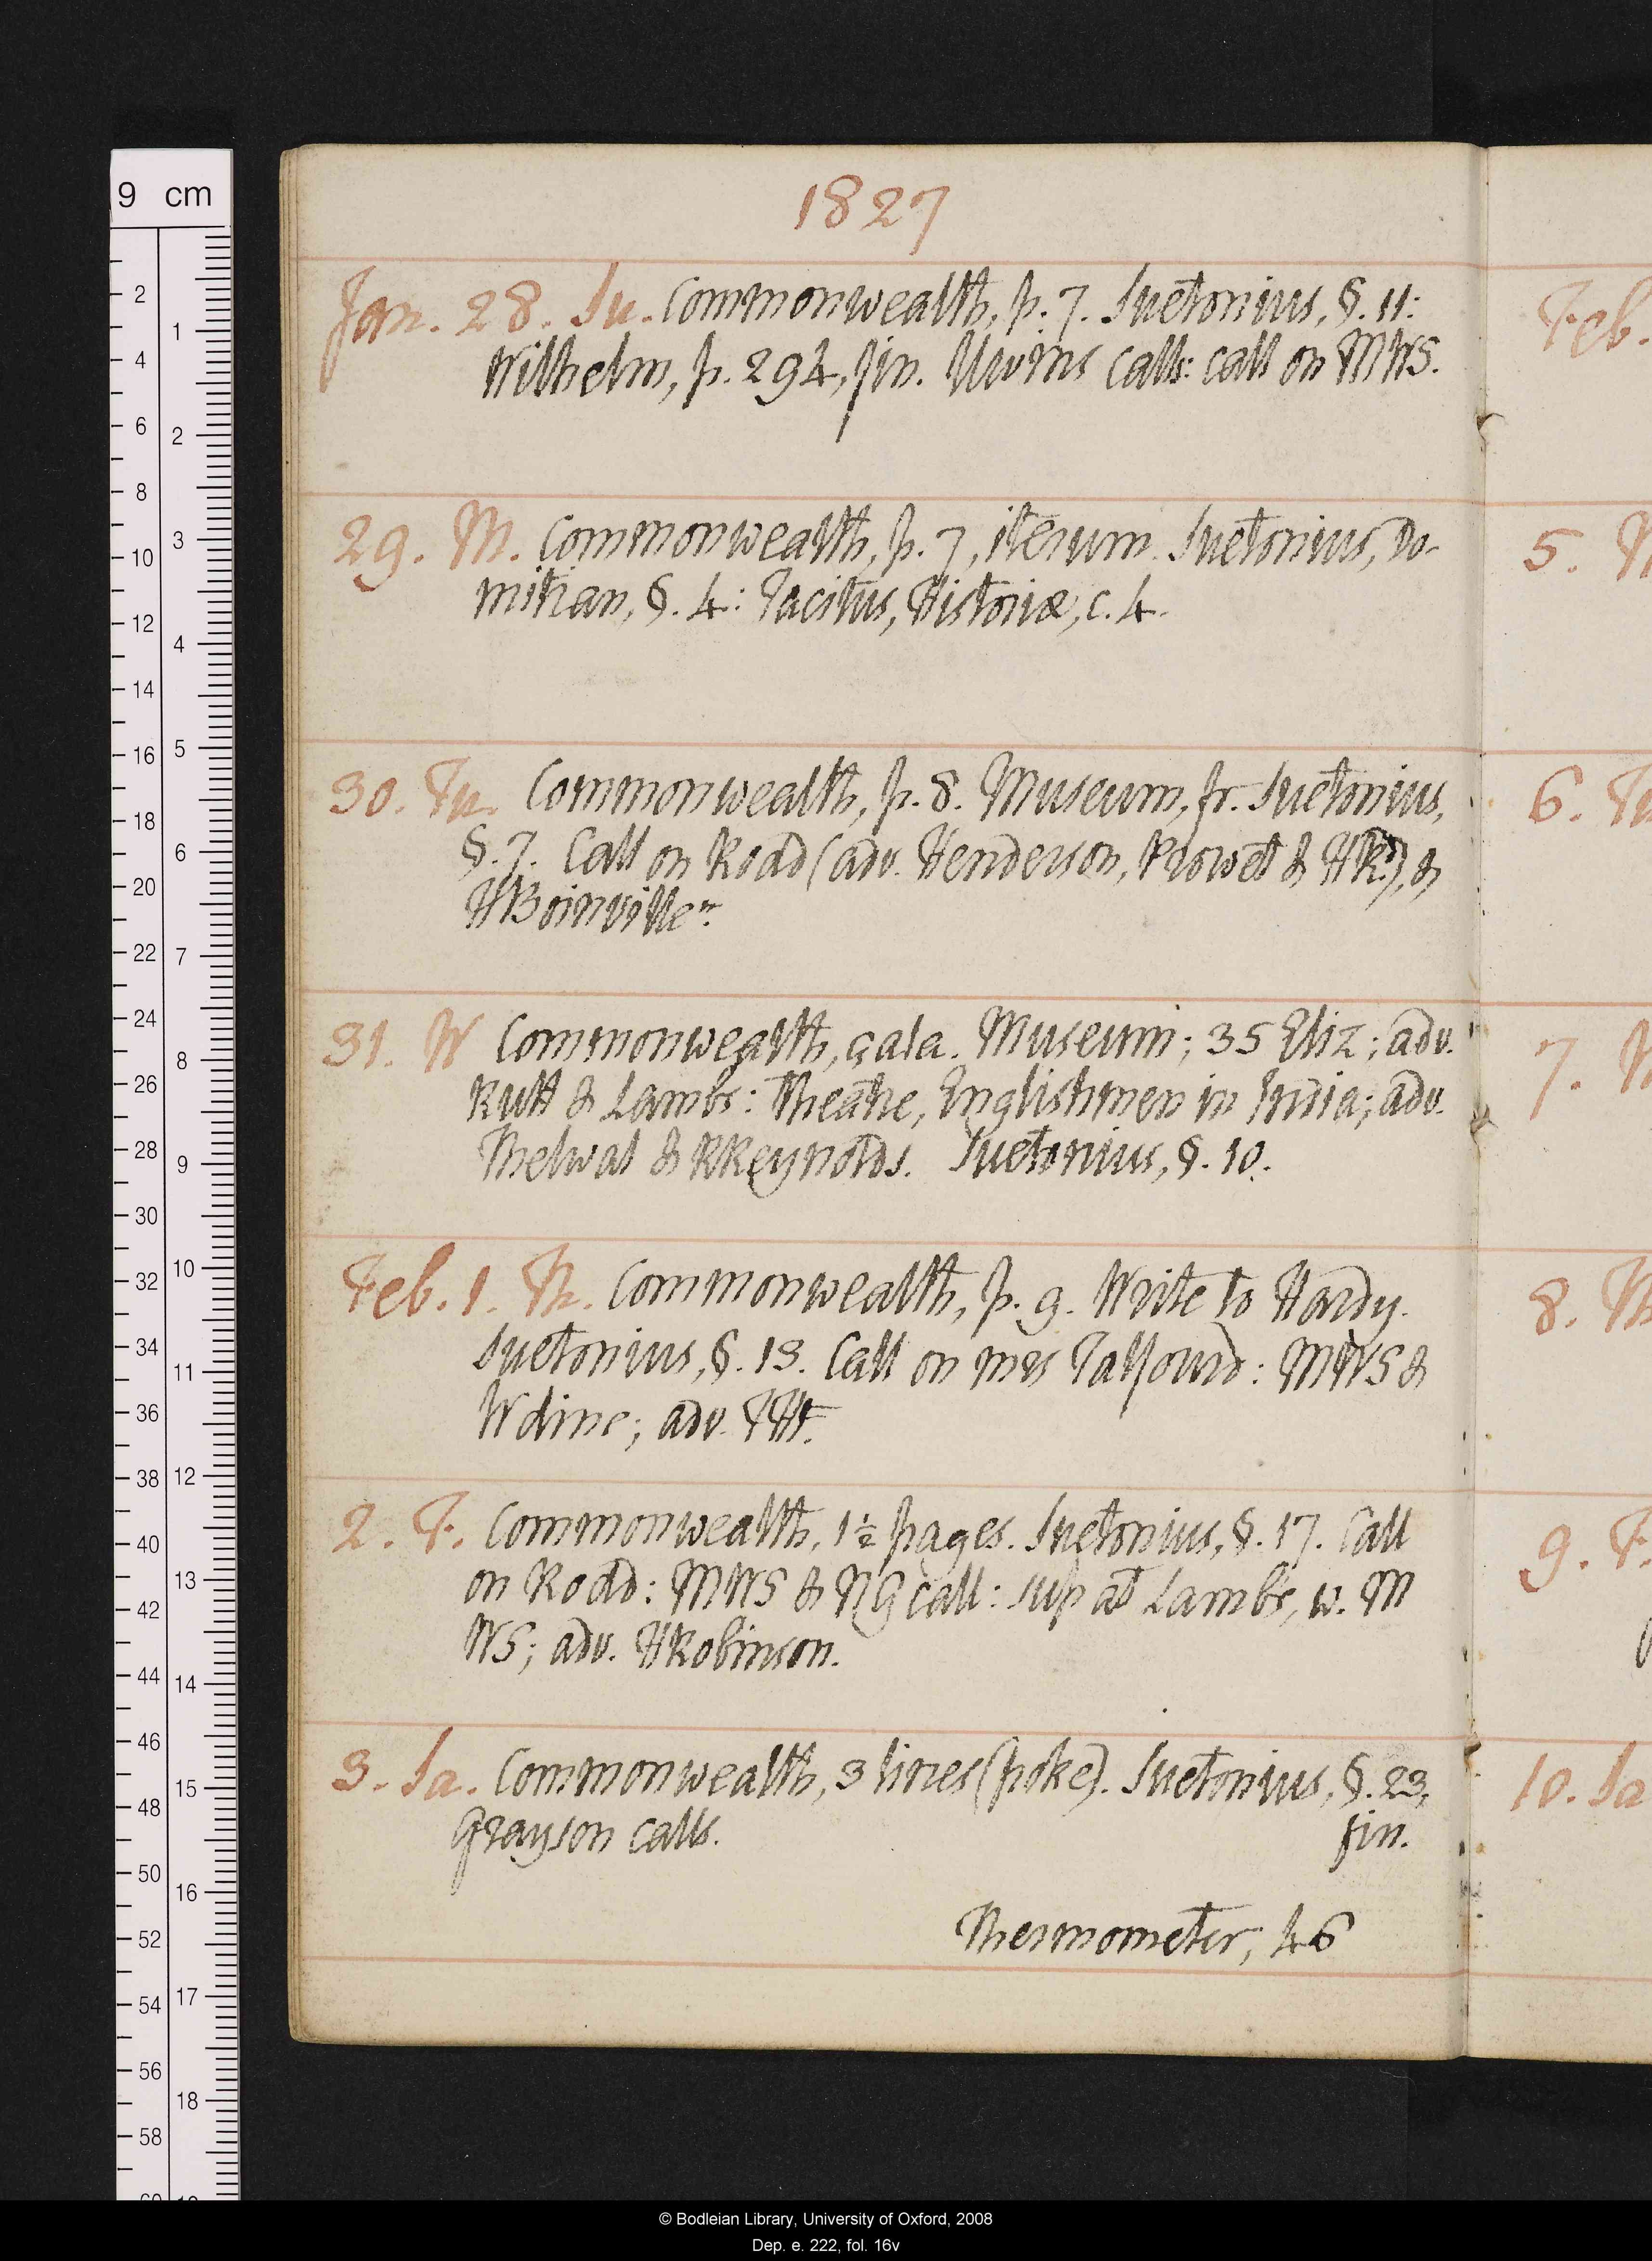 1827
Jan. 28. Su. Commonwealth, p. 7. Suetonius, §. 11:
Wilhelm, p. 294, fin. Uwins calls: call on MWS.
29. M. Commonwealth, p. 7, iterum. Suetonius, Do-
mitian, §. 4: Tacitus, Historiæ, c. 4.
30. Tu. Commonwealth, p. 8. Museum, fr. Suetonius,
§. 7. Call on Rodd (adv. Henderson, Prowet & HRd), &
HBoinville n.
31. W Commonwealth, çala. Museum; 35 Eliz; adv.
Rutt & Lambs: Theatre, Englishmen in India; adv.
Thelwal & RReynolds. Suetonius, §. 10.
Feb. 1. Th. Commonwealth, p. 9. Write to Hardy.
Suetonius, §. 13. Call on mrs Talfourd: MWS &
W dine; adv.
2. F. Commonwealth, 1½ pages. Suetonius, §. 17. Call
on Rodd: MWS & NG call: sup at Lambs, w. M
WS; adv. HRobinson.
3. Sa. Commonwealth, 3 lines (poke). Suetonius, §. 23,
Grayson calls. fin.
Thermometer, 46
Feb.
5. M
6. Tu
7. W
8. Th
9. F.
10. Sa
9 cm
2
4
6
8
10
12
14
16
18
20
22
24
26
28
30
32
34
36
38
40
42
44
46
48
50
52
54
56
58
1
2
3
4
5
6
7
8
9
10
11
12
13
14
15
16
17
18
© Bodleian Library, University of Oxford, 2008
Dep. e. 222, fol. 16v